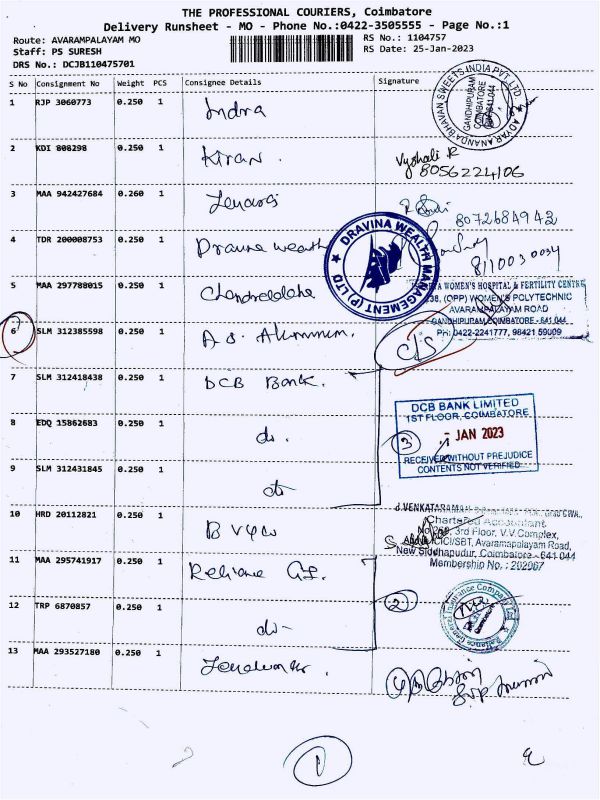 THE PROFESSIONAL COURIERS, Coimbatore
Delivery Runsheet - MO - Phone No.:0422-3505555 - Page No.:1
Route: AVARAMPALAYAM MO
RS No.: 1104757
Staff: PS SURESH
RS Date: 25-Jan-2023
DRS No.: DCJB110475701
S No Consignment No Weight PCS Consignee Details Signature
1 RJP 3060773 0.250 1 Indra
ADYAR ANANDA BHAVAN SWEETS INDIA PVT. LTD
GANDHIPURAM
COIMBATORE
641 044
2 KDI 808298 0.250 1 Kiran.
Vyshali R
8056224106
3 MAA 942427684 0.260 1
8072684942
4 TDR 200008753 0.250 1
DRAVINA WEALTH MANAGEMENT (P) LTD
8110030034
5 MAA 297788015 0.250 1
WOMEN'S HOSPITAL & FERTILITY CENTRE
(OPP) WOMEN'S POLYTECHNIC
AVARAMPALAYAM ROAD
GANDHIPURAM, COIMBATORE - 641 044
Ph: 0422-2241777, 98421 59009
6 SLM 312385598 0.250 1
C/S
7 SLM 312418438 0.250 1 DCB Bank.
DCB BANK LIMITED
1ST FLOOR, COIMBATORE
JAN 2023
RECEIVED WITHOUT PREJUDICE
CONTENTS NOT VERIFIED
8 EDQ 15862683 0.250 1 do.
3
9 SLM 312431845 0.250 1 do
10 HRD 20112821 0.250 1
J.VENKATARAMAN
Chartered Accountant
3rd Floor, V.V.Complex,
ICICI/SBT, Avarampalayam Road,
New Siddhapudur, Coimbatore - 641 044
Membership No. : 202067
11 MAA 295741917 0.250 1 Reliance GI.
12 TRP 6870857 0.250 1 do-
2
Reliance General Insurance Company Ltd
13 MAA 293527180 0.250 1
1